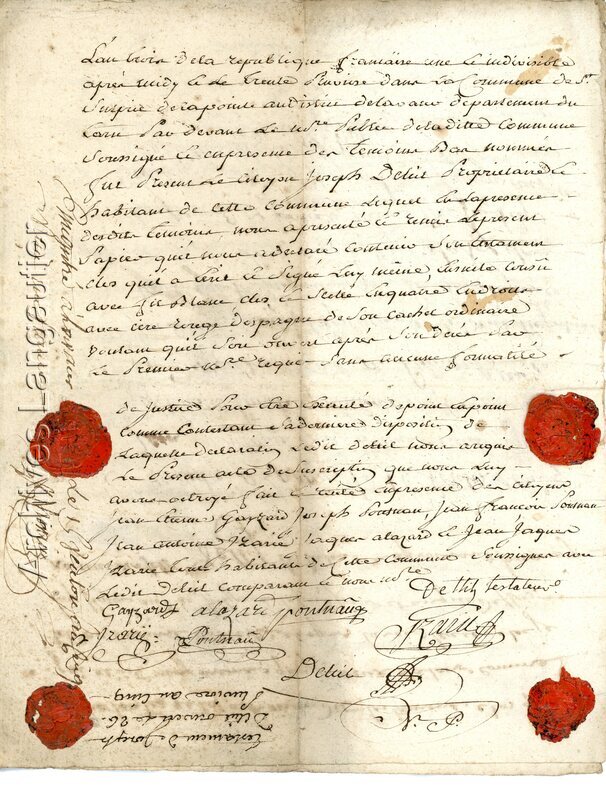 L'an trois de la republique francaise une le indivisible
après midy le le trente Pluviose dans La Commune de St
Sulpice de la pointe au district de lavaur departement du
tarn Par devant Le nre Public de la ditte Commune
soussigné le en presence des temoins bas nommés
fut Present Le Citoyen Joseph Delut Proprietaire le
habitant de Cette Commune Lequel en la presence
desdits temoins nous a presenté le remis le present
Papier qu'il nous a declaré contenir Son testament
clos qu'il a Ecrit le Signé Luy meme, Ensuite cousu
avec fil Blanc clos le Scellé en quatre Endroits
avec cire rouge despagne de Son Cachet ordinaire
voulant qu'il Soit ouvert après Son Décés Par
le Premier nre requis Sans aucune formalité
de Justice Pour être Executé de point en point
Comme Contenant Sa derniere disposition de
Laquelle declaration Ledit delut nous a requis
Le Present acte de Suscription que nous Luy
avons octroyé fait le recité en presence des citoyens
jean Etienne Gayzard Joseph Pontnau, Jean françois Pontnau
Jean antoine Izarié Jaques alazard le Jean Jaques
Izarié tous habitants de Cette Commune Soussignés avec
Ledit delut Comparant le nous nre
Delut testateur
Gayzard alazard Pontnau
Izarié Pontnau
Delut
N. P.
testament de Joseph
Delut ouvert le 26
Archives Langavilier